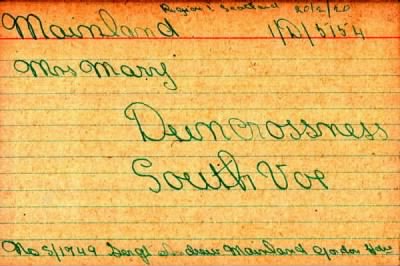 Region 1. Scotland 20/2/20
Mainland 1/D/5154
Mrs Mary
Duncrossness
South Voe
No S/1949 Sergt Andrew Mainland Gordon Hdrs